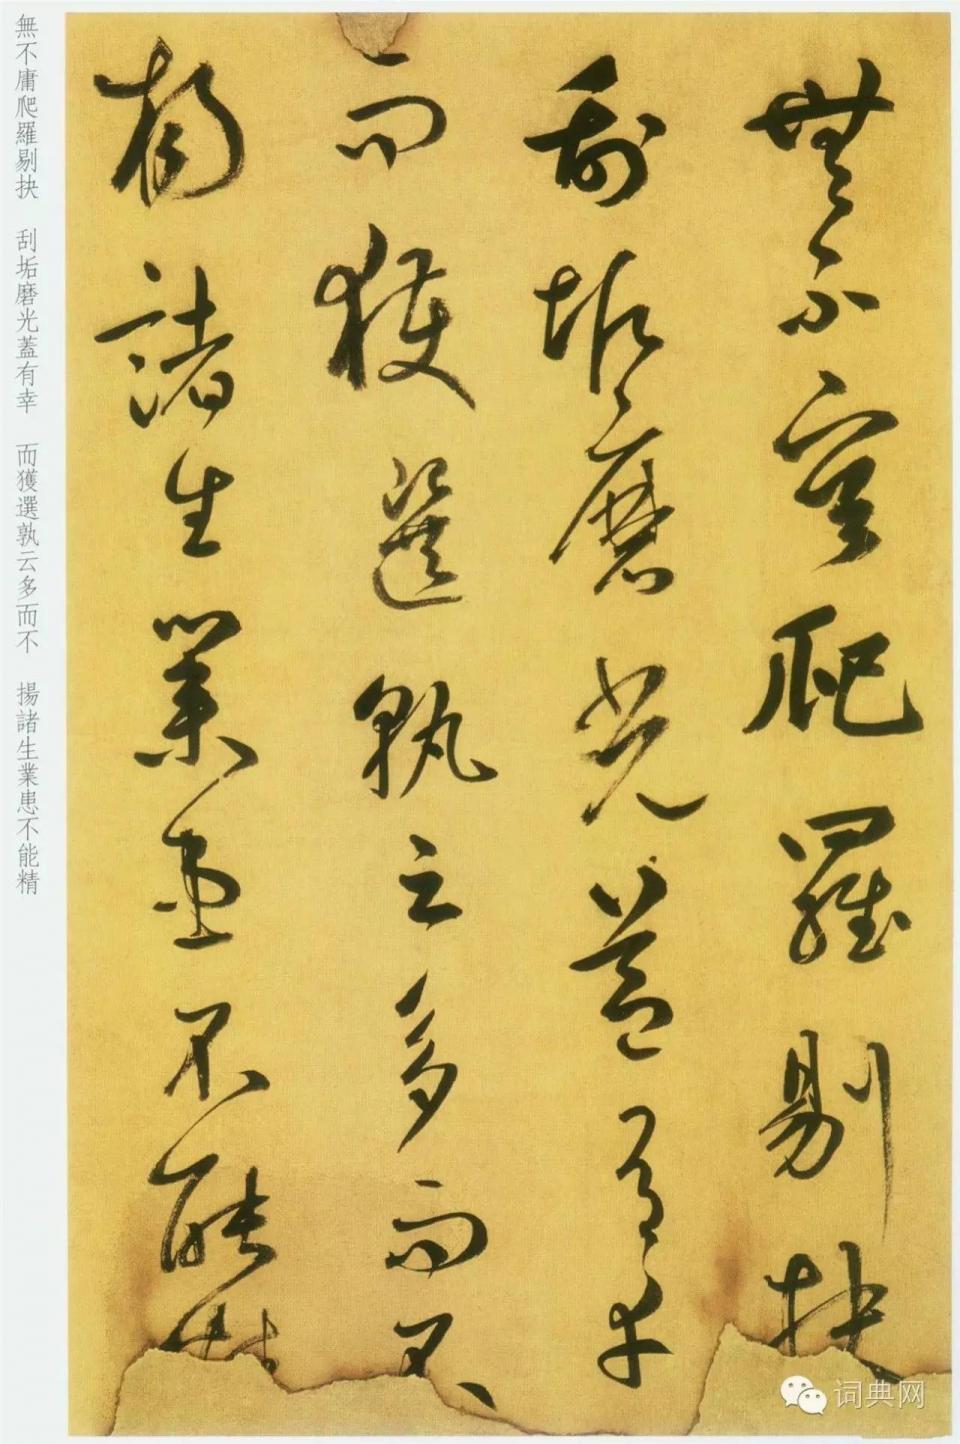 無不庸爬羅剔抉
刮垢磨光蓋有幸
而獲選孰云多而不
揚諸生業患不能精
無不庸爬羅剔抉 刮垢磨光蓋有幸 而獲選孰云多而不 揚諸生業患不能精
词典网